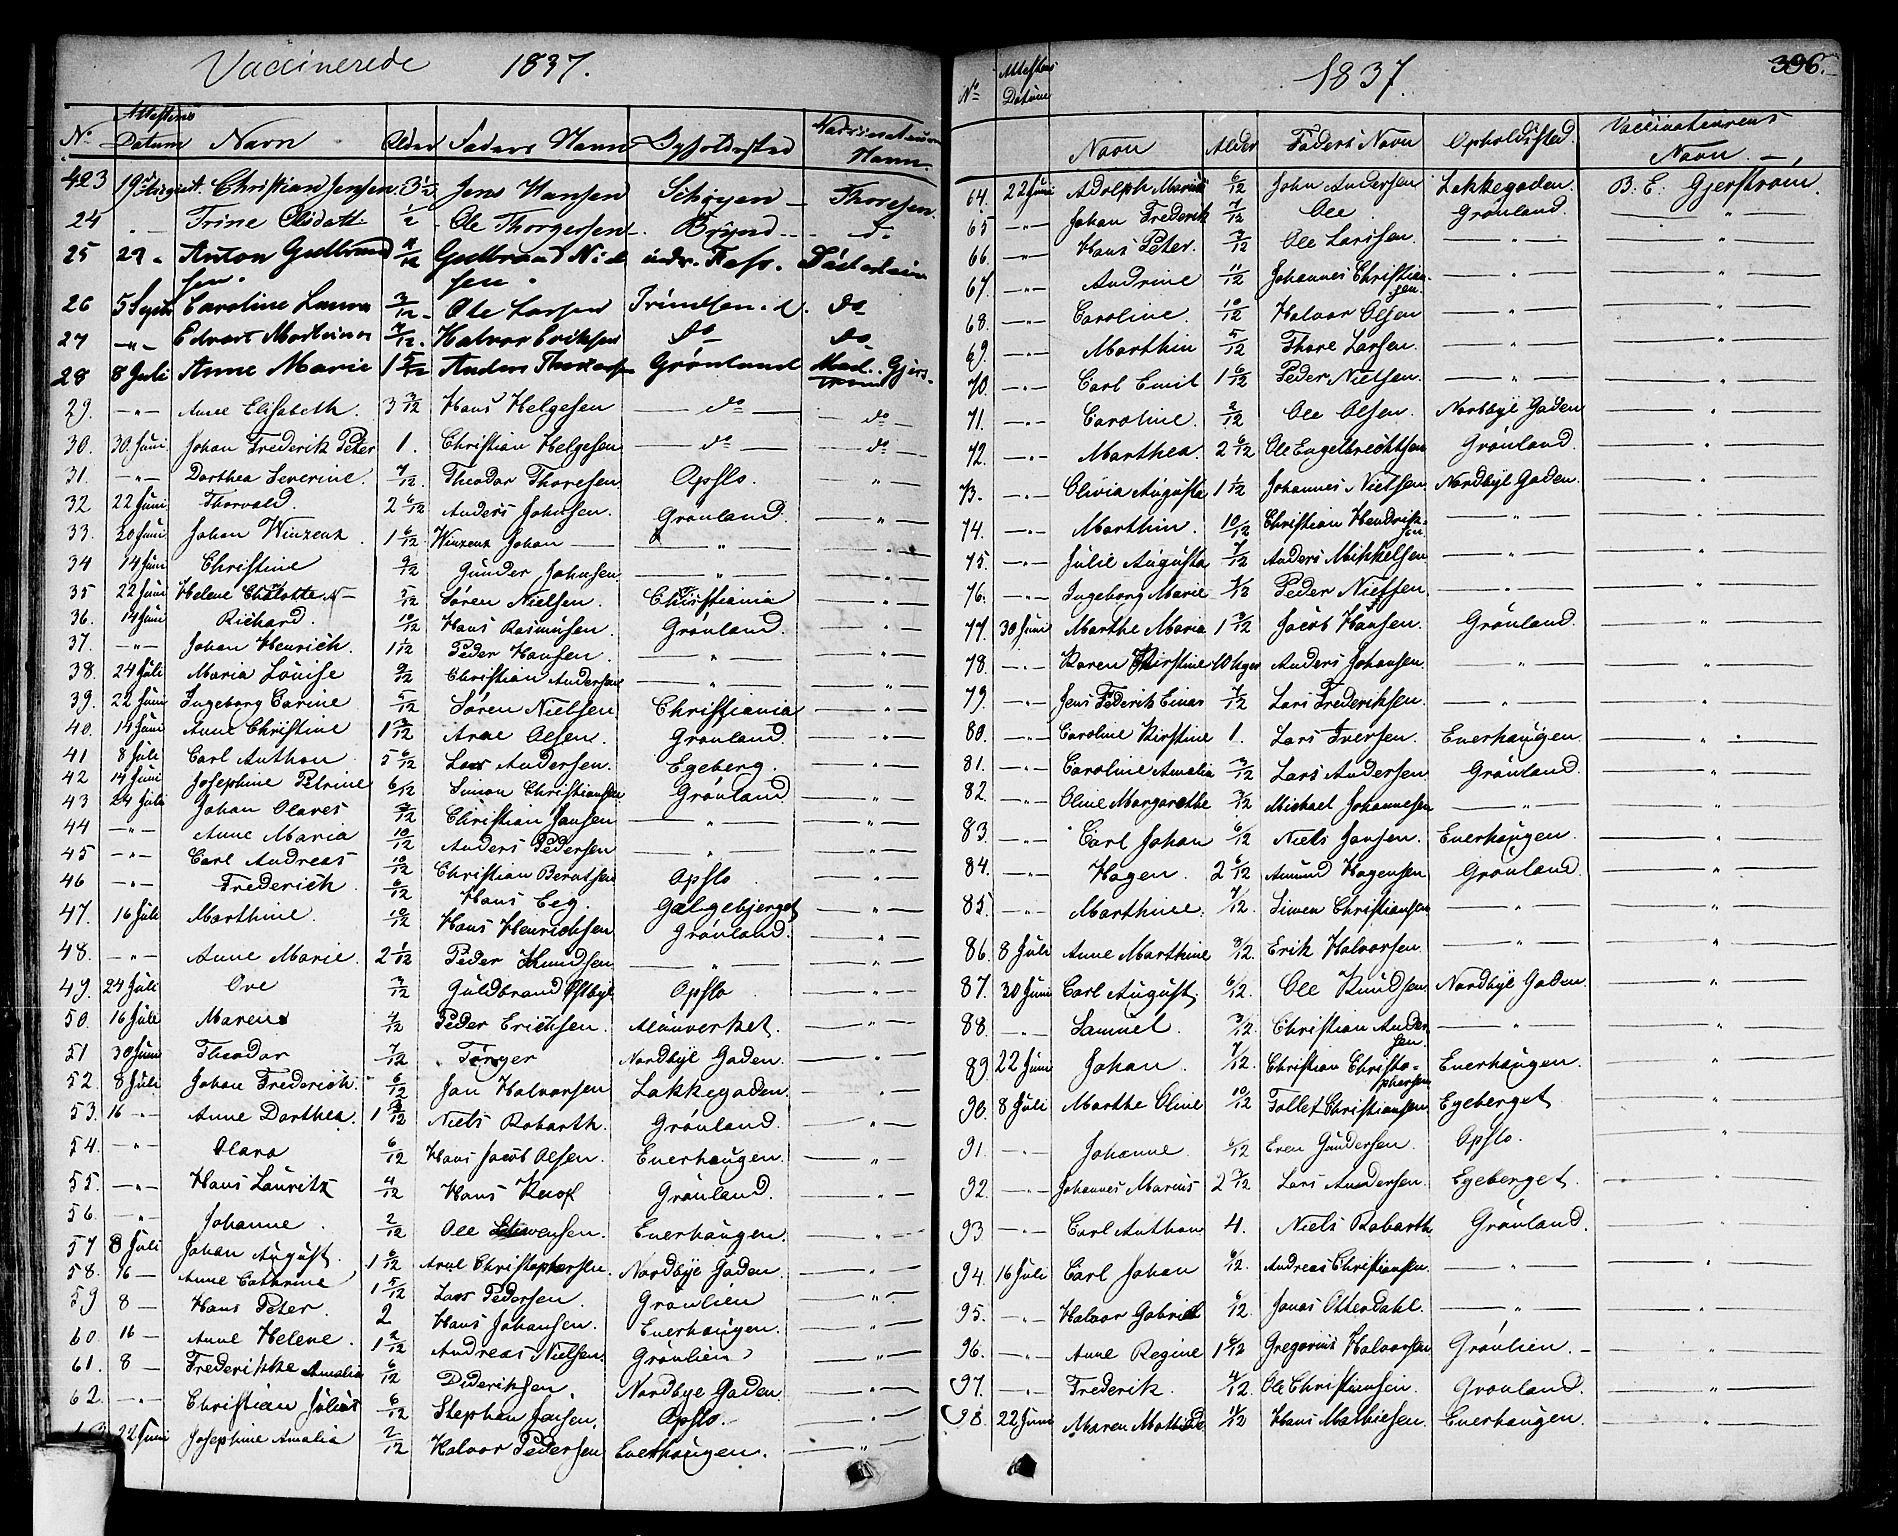 Vaccinerede 1837.
No Attestens Datum Navn Alder Faders Navn Opholdssted Vaccinateurens Navn
423 19de August. Christian Jensen 3 1/2 Jens Hansen Schøyen Thoresen
24 " Trine Olsdatt. 1/2 Ole Thorgersen d.
25 29 " Anton Gudbrand
sen.
26 5 Septr Caroline Laura 3/12 Ole Larsen do
27 —"— Edvart Martinius 7/12 Halvor Eriksen do do
28 8 Juli Anne Marie 1 5/12 Anders Grønland Mad. Gjers-
trøm
29. —"— Anne Elisabeth. 3 3/12 Hans Helgesen — do — — do —
30. 30 Juni Johan Frederik Peter 1. Christian Helgesen — do — — do —
31. —"— Dorthea Severine. 7/12 Theodor Thoresen. Opslo. — " —
32 22 Juni Thorvald. 2 6/12 Anders Johnsen. Grønland. — " —
33. 20 Juni Johan Winzent 1 6/12 Winzent Johan — " — — " —
34 14 Juni Christine 9/12 Gunder Johnsen — " — — " —
35 22 Juni Helene Charlotte N— 3/12 Søren Nielsen. Christiania — " —
36. 14 Juni Richard. 10/12 Hans Rasmusen. Grønland. — " —
37. —"— Johan Henrich. 1 1/12 Peder Hansen. — " — — " —
38. 24 Juli Maria Louise 9/12 Christian Andersen — " — — " —
39. 22 Juni Ingeborg Carine 5/12 Søren Nielsen Christiania — " —
40. 14 Juni Anne Christine 1 3/12 Arne Olsen. Grønland. — " —
41 8 Juli Carl Anthon 5 6/12 Lars Andersen. Egeberg. — " —
42 14 Juni Josephine Petrine 6/12 Simon Christiansen Grønland — " —
43 24 Juli Johan Olaves 3/12 Christian Jansen — " — — " —
44 —"— Anne Maria 10/12 Anders Pedersen — " — — " —
45 —"— Carl Andreas 10/12 Christian Berntsen Opslo — " —
46 —"— Frederich. 6/12 Hans Eeg. Galgebjerget — " —
47. 16 Juli Marthine. 10/12 Hans Henrichsen Grønland. — " —
48. —"— Anne Marie. 2 1/12 Peder Knudsen — " — — " —
49. 24 Juli Ove 3/12 Guldbrand Østbye Opslo — " —
50. 16 Juli Maren 4/12 Peder Erichsen. Alunverket. — " —
51 30 Juni Theodor 7/12 Torger Nordbye Gaden. — " —
52. 8 Juli Johan Frederich. 6/12 Jan Halvorsen Lakkegaden. — " —
53. 16 —"— Anne Dorthea. 1 3/12 Niels Robarth. Grønland. — " —
54. —"— Olava 6/12 Hans Jacob Olsen. Enerhaugen. — " —
55. —"— Hans Lauritz 4/12 Hans Grønland. — " —
56. —"— Johanne. 2/12 Ole Enerhaugen. — " —
57 8 Juli Johan August. 1 6/12 Arne Christophersen. Nordbye Gaden. — " —
58. 16 — Anne Cathrine 1 5/12 Lars Pedersen. Grønlien — " —
59 8 — Hans Peter. 2 Hans Johansen. Enerhaugen. — " —
60. 16 — Anne Helene. 1 2/12 Andreas Nielsen. Grønlien — " —
61. 8 — Frederikke Amalia 6/12 Dideriksen. Nordbye Gaden — " —
62. —"— Christian Julius 6/12 Stephen Jansen. Opslo. — " —
63 22 Juni Josephine Amalia 2/12 Halvor Pedersen Enerhaugen. — " —
1837. 396.
No Attestens Datum Navn Alder Faders Navn Opholdssted. Vaccinateurens Navn.
64. 22 Juni Adolph Marius 6/12 John Andersen Lakkegaden. B. E. Gjerstrøm.
65 —"— Johan Frederik 7/12 Ole Grønland. — " —
66. —"— Hans Peter. 7/12 Ole Larssen. — " — — " —
67. —"— Andrine 11/12 Johannes Christian-
sen. — " — — " —
68. —"— Caroline. 10/12 Halvor Olsen — " — — " —
69. —"— Marthin 5/12 Thore Larsen. — " — — " —
70. —"— Carl Emil 1 6/12 Peder Nielsen. — " — — " —
71. —"— Caroline. 2/12 Ole Olsen. Nordbye Gaden — " —
72. —"— Marthea. 2 6/12 Ole Engelbrechtsen Grønland. — " —
73. —"— Olivia Augusta 1 1/12 Johannes Nielsen Nordbye Gaden. — " —
74. —"— Marthin. 10/12 Christian Hendrik-
sen — " — — " —
75. —"— Julie Augusta 7/12 Anders Mikkelsen — " — — " —
76. —"— Ingeborg Marie Peder Nielsen. — " — — " —
77. 30 Juni Marthe Maria 1 3/12 Jacob Hansen. Grønland. — " —
78. —"— Karen Kirstine 10 Uger Anders Johansen. — " — — " —
79. —"— Jens Federik Einar 7/12 Lars Frederiksen. — " — — " —
80. —"— Caroline Kirstine 1. Lars Iversen. Enerhaugen. — " —
81. —"— Caroline Amalia 3/12 Lars Andersen Grønland. — " —
82. —"— Oline Margarethe 3/12 Michael Johannesen — " — — " —
83. —"— Carl Johan 6/12 Niels Jansen. Enerhaugen. — " —
84. —"— Hagen. 2 6/12 Amund Hagensen Grønland. — " —
85. —"— Marthine. 7/12. Simen Christiansen — " — — " —
86. 8 Juli Anne Marthine 3/12. Erik Halvorsen. — " — — " —
87. 30 Juni Carl August. 6/12. Ole Knudsen Nordbye Gaden. — " —
88. —"— Samuel. 3/12. Christian Ander-
sen. — " — — " —
89 22 Juni Johan. 7/12. Christian Christo-
phersen Enerhaugen. — " —
90. 8 Juli Marthe Oline 10/12 Tollef Christiansen Egeberget — " —
91. —"— Johanne 6/12 Even Gundersen. Opslo. — " —
92. —"— Johannes Marius 2 3/12 Lars Andersen. Egeberget. — " —
93 —"— Carl Anthon 4. Niels Robarth Grønland. — " —
94. 16 Juli Carl Johan 6/12. Andreas Christiansen. — " — — " —
95. —"— Halvor Gabriel 6/12 Jonas Otterdahl. — " — — " —
96. —"— Anne Regine 1 6/12 Gregorius Halvorsen Grønlien. — " —
97. —"— Frederik. 4/12. Ole Christiansen. Grønland. — " —
98. 22 Juni Maren Mathilde Hans Mathiesen. Enerhaugen. — " —